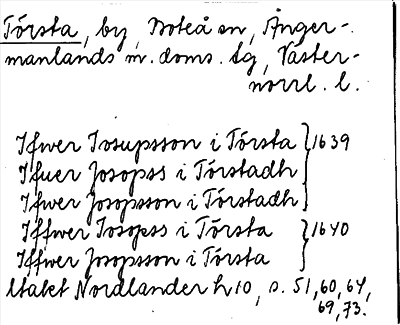 Törsta, by, Boteå sn, Ånger-
manlands m. doms. tg, Väster-
norrl. l.
Ifwer Iosupsson i Törsta } 1639
Ifuer Josopss i Törstadh
Ifwer Josopsson i Törstadh
Iffwer Iosopss i Törsta } 1640
Iffwer Josopsson i Törsta
ltakt Nordlander h 10, s. 51, 60, 64,
69, 73.